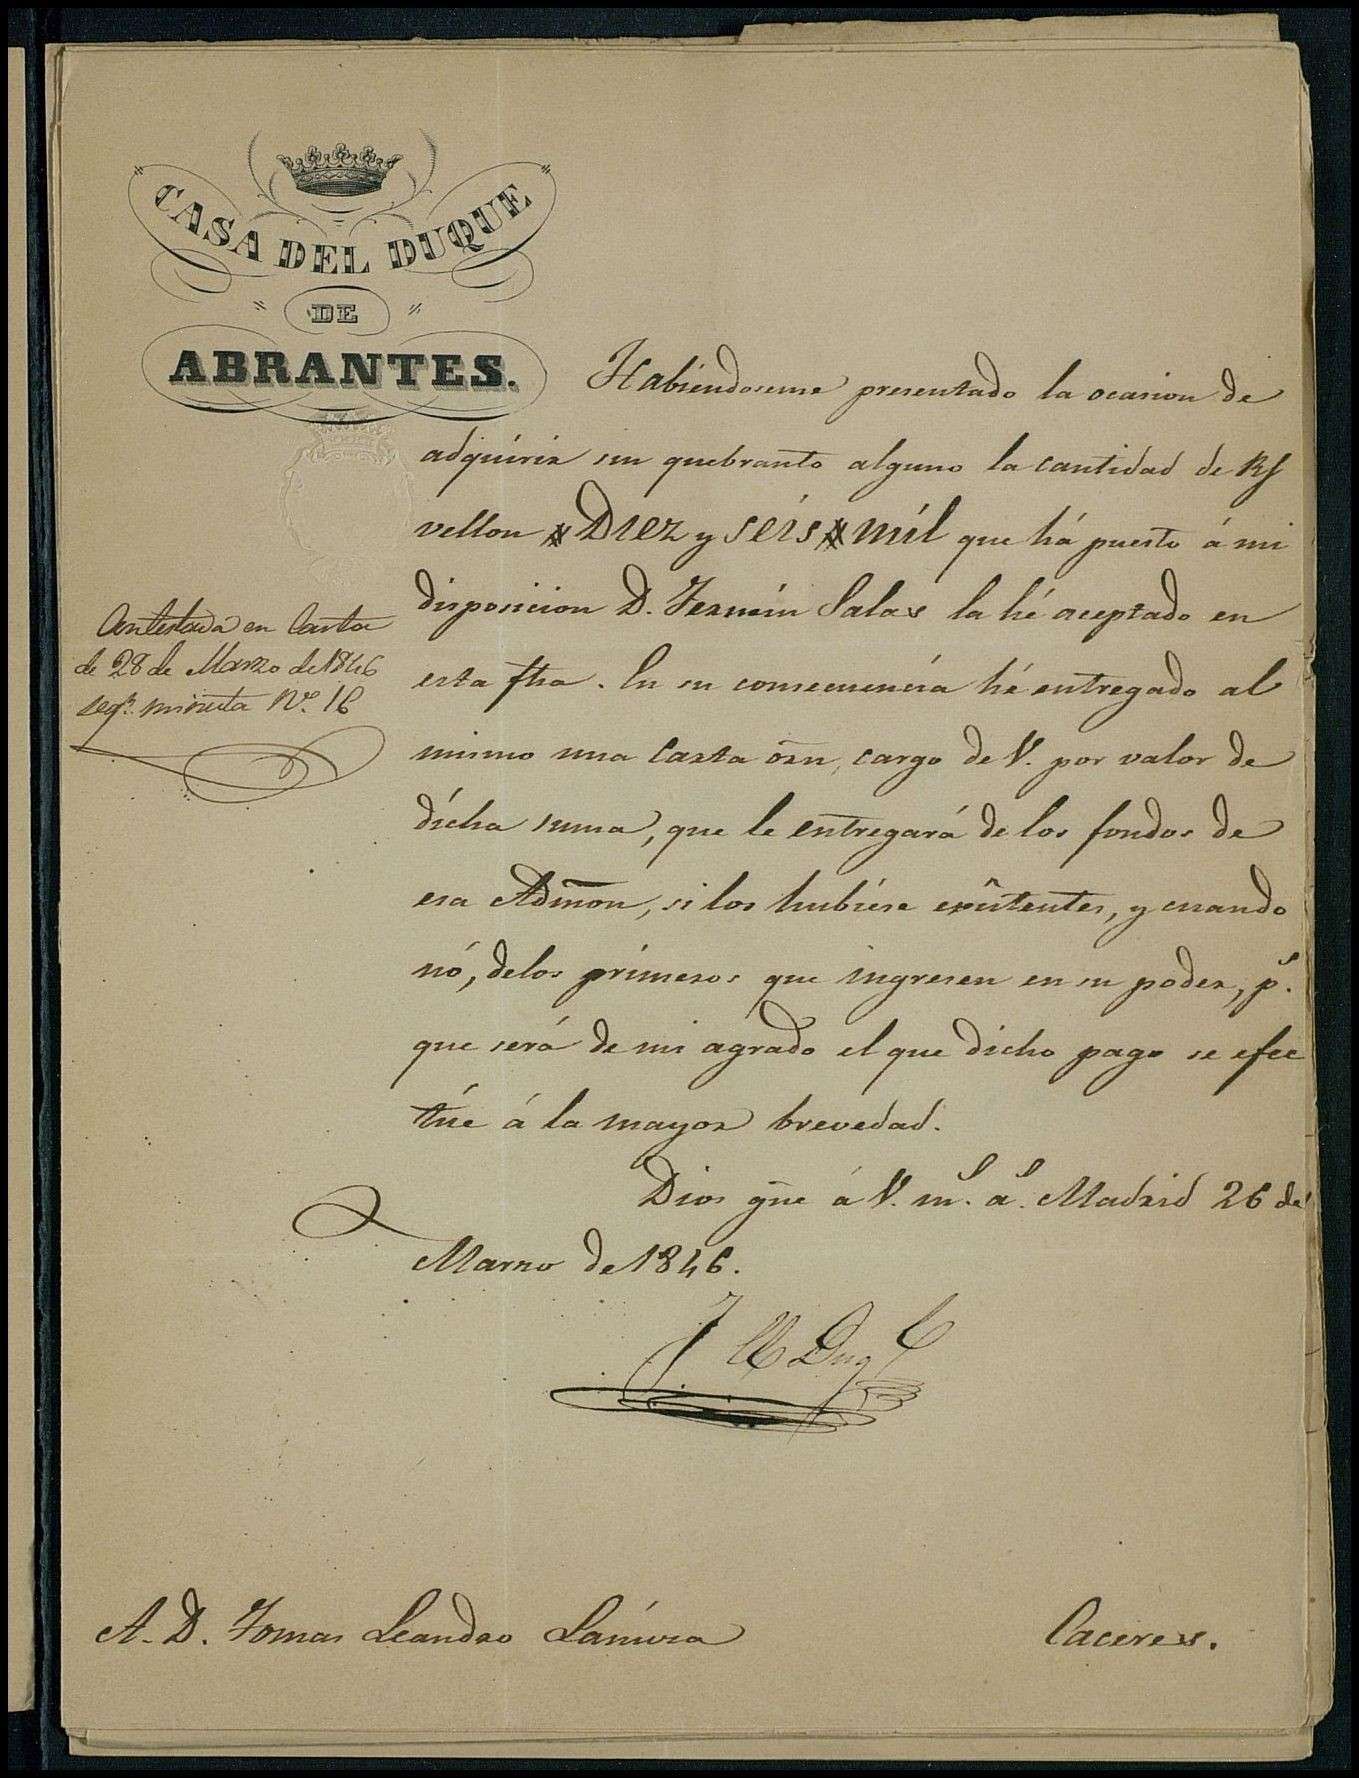 CASA DEL DUQUE
DE
ABRANTES.
Habiendoseme presentado la ocasion de
adquirir sin quebranto alguno la cantidad de Rs
vellon Diez y seis mil que há puesto á mi
disposicion D. Fermin Salas la hé aceptado en
esta fha. En su consecuencia hé entregado al
mismo una carta orn, cargo de V. por valor de
dicha suma, que le entregará de los fondos de
esa Admon, si los hubiese exîstentes, y cuando
nó, delos primeros que ingresen en su poder, ps.
que será de mi agrado el que dicho pago se efec
túe á la mayor brevedad.
Dios gue á V. ms. as. Madrid 26 de
Marzo de 1846.
Contestada en Carta
de 28 de Marzo de 1846
segn. minuta Nº. 16
El Duq
A. D. Tomas Leandro
Caceres.